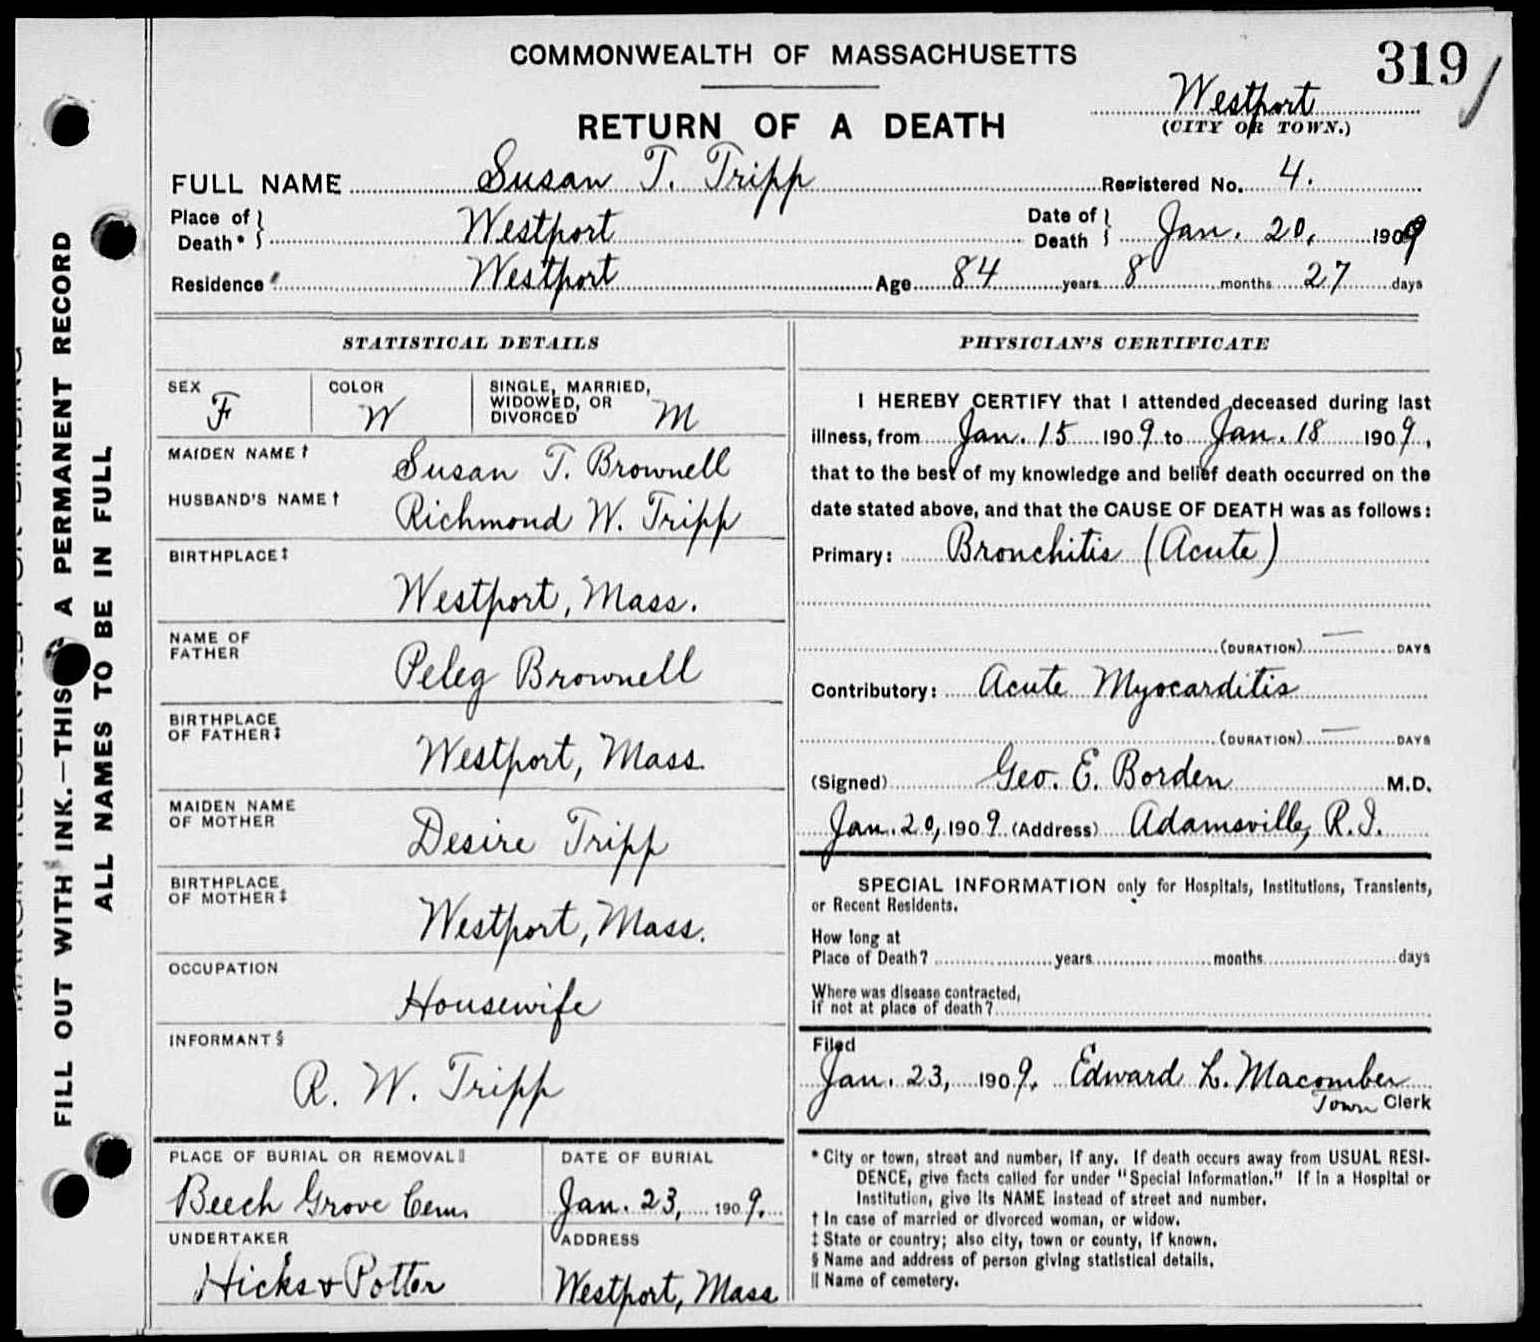 COMMONWEALTH OF MASSACHUSETTS
319
Westport
(CITY OR TOWN.)
RETURN OF A DEATH
FULL NAME Susan T. Tripp Registered No. 4.
Place of Death* Westport Date of Death Jan. 20, 1909
Residence Westport Age 84 years 8 months 27 days
STATISTICAL DETAILS
SEX F COLOR W SINGLE, MARRIED, WIDOWED, OR DIVORCED M
MAIDEN NAME † Susan T. Brownell
HUSBAND'S NAME † Richmond W. Tripp
BIRTHPLACE ‡
Westport, Mass.
NAME OF FATHER Peleg Brownell
BIRTHPLACE OF FATHER ‡ Westport, Mass
MAIDEN NAME OF MOTHER Desire Tripp
BIRTHPLACE OF MOTHER ‡ Westport, Mass.
OCCUPATION
Housewife
INFORMANT §
R. W. Tripp
PLACE OF BURIAL OR REMOVAL ‖ DATE OF BURIAL
Beech Grove Cem. Jan. 23, 1909.
UNDERTAKER ADDRESS
Hicks & Potter Westport, Mass
PHYSICIAN'S CERTIFICATE
I HEREBY CERTIFY that I attended deceased during last
illness, from Jan. 15 1909 to Jan. 18 1909,
that to the best of my knowledge and belief death occurred on the
date stated above, and that the CAUSE OF DEATH was as follows:
Primary: Bronchitis (Acute)
(DURATION) — DAYS
Contributory: Acute Myocarditis
(DURATION) — DAYS
(Signed) Geo. E. Borden M.D.
Jan. 20, 1909 (Address) Adamsville, R.I.
SPECIAL INFORMATION only for Hospitals, Institutions, Transients,
or Recent Residents.
How long at
Place of Death? years months days
Where was disease contracted,
if not at place of death?
Filed
Jan. 23, 1909. Edward L. Macomber
Town Clerk
* City or town, street and number, if any. If death occurs away from USUAL RESI-
DENCE, give facts called for under "Special Information." If in a Hospital or
Institution, give its NAME instead of street and number.
† In case of married or divorced woman, or widow.
‡ State or country; also city, town or county, if known.
§ Name and address of person giving statistical details.
‖ Name of cemetery.
FILL OUT WITH INK.—THIS IS A PERMANENT RECORD
ALL NAMES TO BE IN FULL